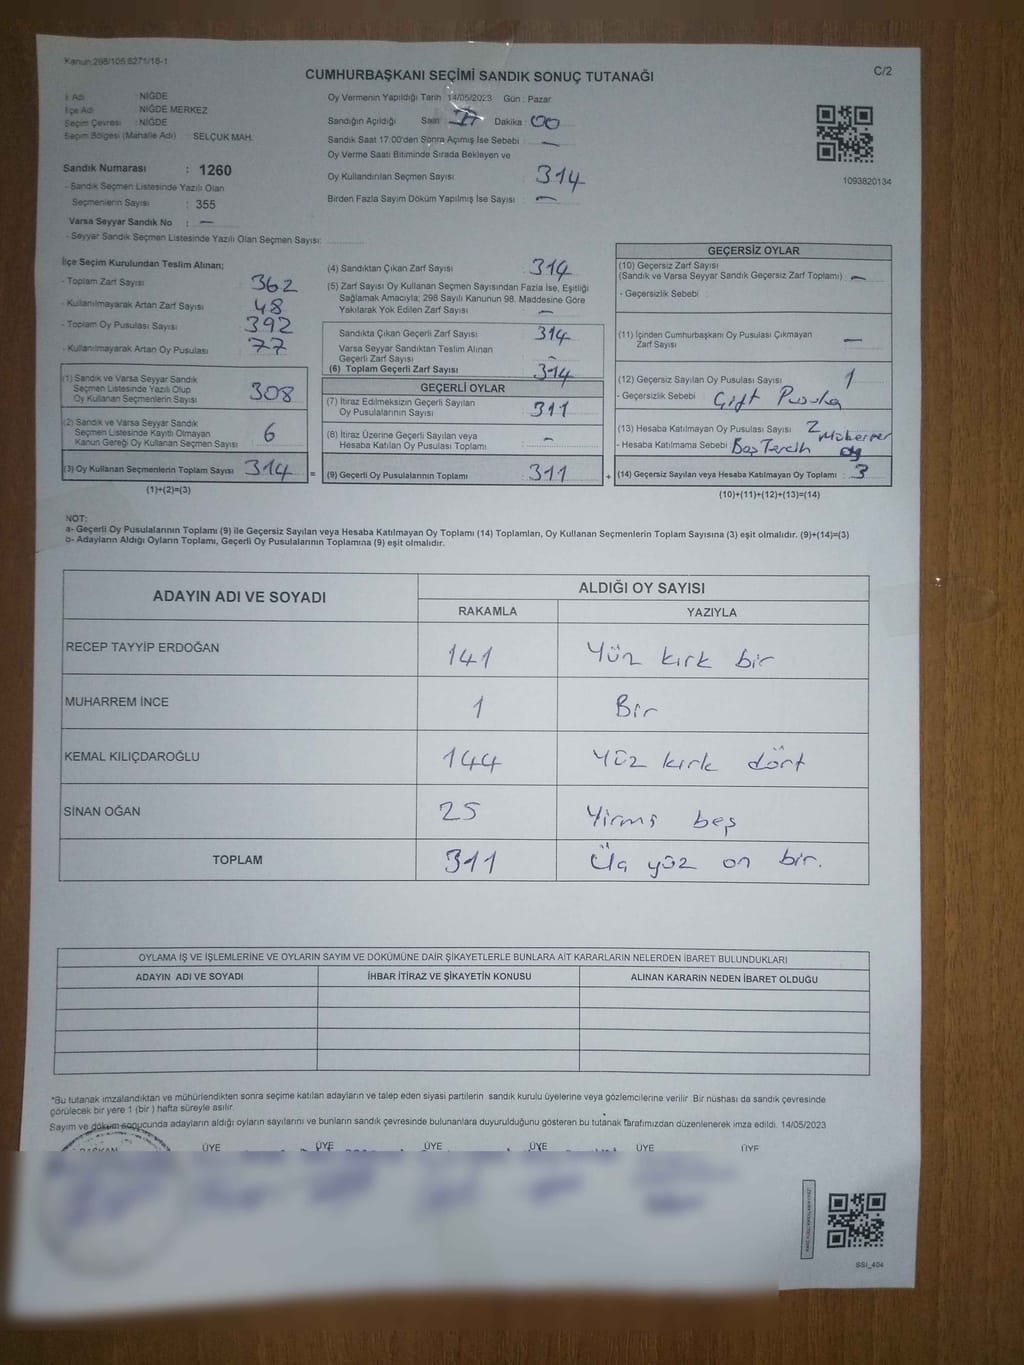 Kanun:298/105,6271/18-1
CUMHURBAŞKANI SEÇİMİ SANDIK SONUÇ TUTANAĞI
C/2
İl Adı : NİĞDE
İlçe Adı : NİĞDE MERKEZ
Seçim Çevresi : NİĞDE
Seçim Bölgesi (Mahalle Adı) : SELÇUK MAH.
Sandık Numarası : 1260
- Sandık Seçmen Listesinde Yazılı Olan
Seçmenlerin Sayısı : 355
Varsa Seyyar Sandık No : —
- Seyyar Sandık Seçmen Listesinde Yazılı Olan Seçmen Sayısı:
Oy Vermenin Yapıldığı Tarih : 14/05/2023 Gün : Pazar
Sandığın Açıldığı Saat : 17 Dakika : 00
Sandık Saat 17:00'den Sonra Açımış İse Sebebi : —
Oy Verme Saati Bitiminde Sırada Bekleyen ve
Oy Kullandırılan Seçmen Sayısı : 314
Birden Fazla Sayım Döküm Yapılmış İse Sayısı : —
1093820134
İlçe Seçim Kurulundan Teslim Alınan;
- Toplam Zarf Sayısı : 362
- Kullanılmayarak Artan Zarf Sayısı : 48
- Toplam Oy Pusulası Sayısı : 392
- Kullanılmayarak Artan Oy Pusulası : 77
(1) Sandık ve Varsa Seyyar Sandık
Seçmen Listesinde Yazılı Olup
Oy Kullanan Seçmenlerin Sayısı 308
(2) Sandık ve Varsa Seyyar Sandık
Seçmen Listesinde Kayıtlı Olmayan
Kanun Gereği Oy Kullanan Seçmen Sayısı 6
(3) Oy Kullanan Seçmenlerin Toplam Sayısı 314 =
(1)+(2)=(3)
(4) Sandıktan Çıkan Zarf Sayısı : 314
(5) Zarf Sayısı Oy Kullanan Seçmen Sayısından Fazla İse, Eşitliği
Sağlamak Amacıyla; 298 Sayılı Kanunun 98. Maddesine Göre
Yakılarak Yok Edilen Zarf Sayısı : —
Sandıkta Çıkan Geçerli Zarf Sayısı : 314
Varsa Seyyar Sandıktan Teslim Alınan
Geçerli Zarf Sayısı : —
(6) Toplam Geçerli Zarf Sayısı : 314
GEÇERLİ OYLAR
(7) İtiraz Edilmeksizin Geçerli Sayılan
Oy Pusulalarının Sayısı : 311
(8) İtiraz Üzerine Geçerli Sayılan veya
Hesaba Katılan Oy Pusulası Sayısı : —
(9) Geçerli Oy Pusulalarının Toplamı : 311 +
GEÇERSİZ OYLAR
(10) Geçersiz Zarf Sayısı
(Sandık ve Varsa Seyyar Sandık Geçersiz Zarf Toplamı) : —
- Geçersizlik Sebebi :
(11) İçinden Cumhurbaşkanı Oy Pusulası Çıkmayan
Zarf Sayısı : —
(12) Geçersiz Sayılan Oy Pusulası Sayısı : 1
- Geçersizlik Sebebi : Çift Pusula
(13) Hesaba Katılmayan Oy Pusulası Sayısı : 2
- Hesaba Katılmama Sebebi : Boş Tercih Mükerrer oy
(14) Geçersiz Sayılan veya Hesaba Katılmayan Oy Toplamı : 3
(10)+(11)+(12)+(13)=(14)
NOT:
a- Geçerli Oy Pusulalarının Toplamı (9) ile Geçersiz Sayılan veya Hesaba Katılmayan Oy Toplamı (14) Toplamları, Oy Kullanan Seçmenlerin Toplam Sayısına (3) eşit olmalıdır. (9)+(14)=(3)
b- Adayların Aldığı Oyların Toplamı, Geçerli Oy Pusulalarının Toplamına (9) eşit olmalıdır.
ADAYIN ADI VE SOYADI
ALDIĞI OY SAYISI
RAKAMLA YAZIYLA
RECEP TAYYİP ERDOĞAN 141 Yüz kırk bir
MUHARREM İNCE 1 Bir
KEMAL KILIÇDAROĞLU 144 Yüz kırk dört
SİNAN OĞAN 25 Yirmi beş
TOPLAM 311 Üç yüz on bir.
OYLAMA İŞ VE İŞLEMLERİNE VE OYLARIN SAYIM VE DÖKÜMÜNE DAİR ŞİKAYETLERLE BUNLARA AİT KARARLARIN NELERDEN İBARET BULUNDUKLARI
ADAYIN ADI VE SOYADI İHBAR İTİRAZ VE ŞİKAYETİN KONUSU ALINAN KARARIN NEDEN İBARET OLDUĞU
*Bu tutanak imzalandıktan ve mühürlendikten sonra seçime katılan adayların ve talep eden siyasi partilerin sandık kurulu üyelerine veya gözlemcilerine verilir. Bir nüshası da sandık çevresinde
görülecek bir yere 1 (bir) hafta süreyle asılır.
Sayım ve döküm sonucunda adayların aldığı oyların sayılarını ve bunların sandık çevresinde bulunanlara duyurulduğunu gösteren bu tutanak tarafımızdan düzenlenerek imza edildi. 14/05/2023
BAŞKAN ÜYE ÜYE ÜYE ÜYE ÜYE ÜYE
SSI_404